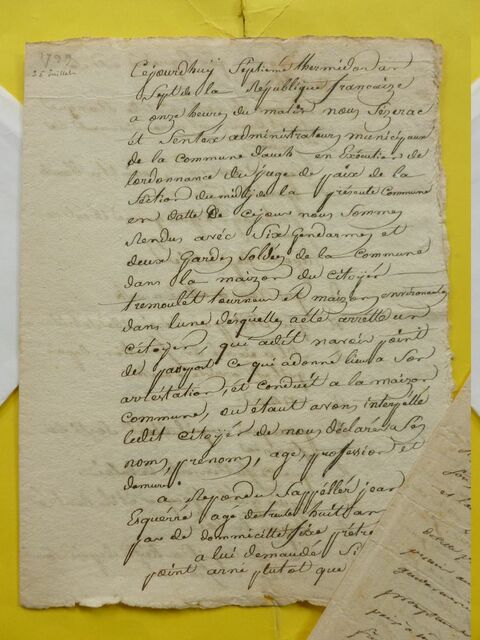 1799
25 Juillet
Cejourdhuy Septieme thermidor an
Sept de la République francaize
a onze heures du matin nous Sézerac
et Sentex administrateurs municipaux
de la Commune dauch en Execution de
lordonnance du juge de paix de la
Section du midy de la presente Commune
en datte De cejour nous Sommes
Rendus avec Six Gendarmes et
deux Gardes Soldés de la Commune
dans la maizon du citoyen
tremoulét tourneur et maizons environantes
dans lune desquelles a été arretté un
citoyen, qui a dit navoir point
de passeport ce qui a donné lieu a Son
arréstation, et conduit a la maizon
Commune, ou étant avons interpéllé
ledit citoyén de nous déclarer Ses
nom, prenom, age, profession et
demure.
a Repondu Sappéller jean
Esquerré age de trente huit an
pas de dommicille fixe prétre
a lui demandé Si
point armé plutot que